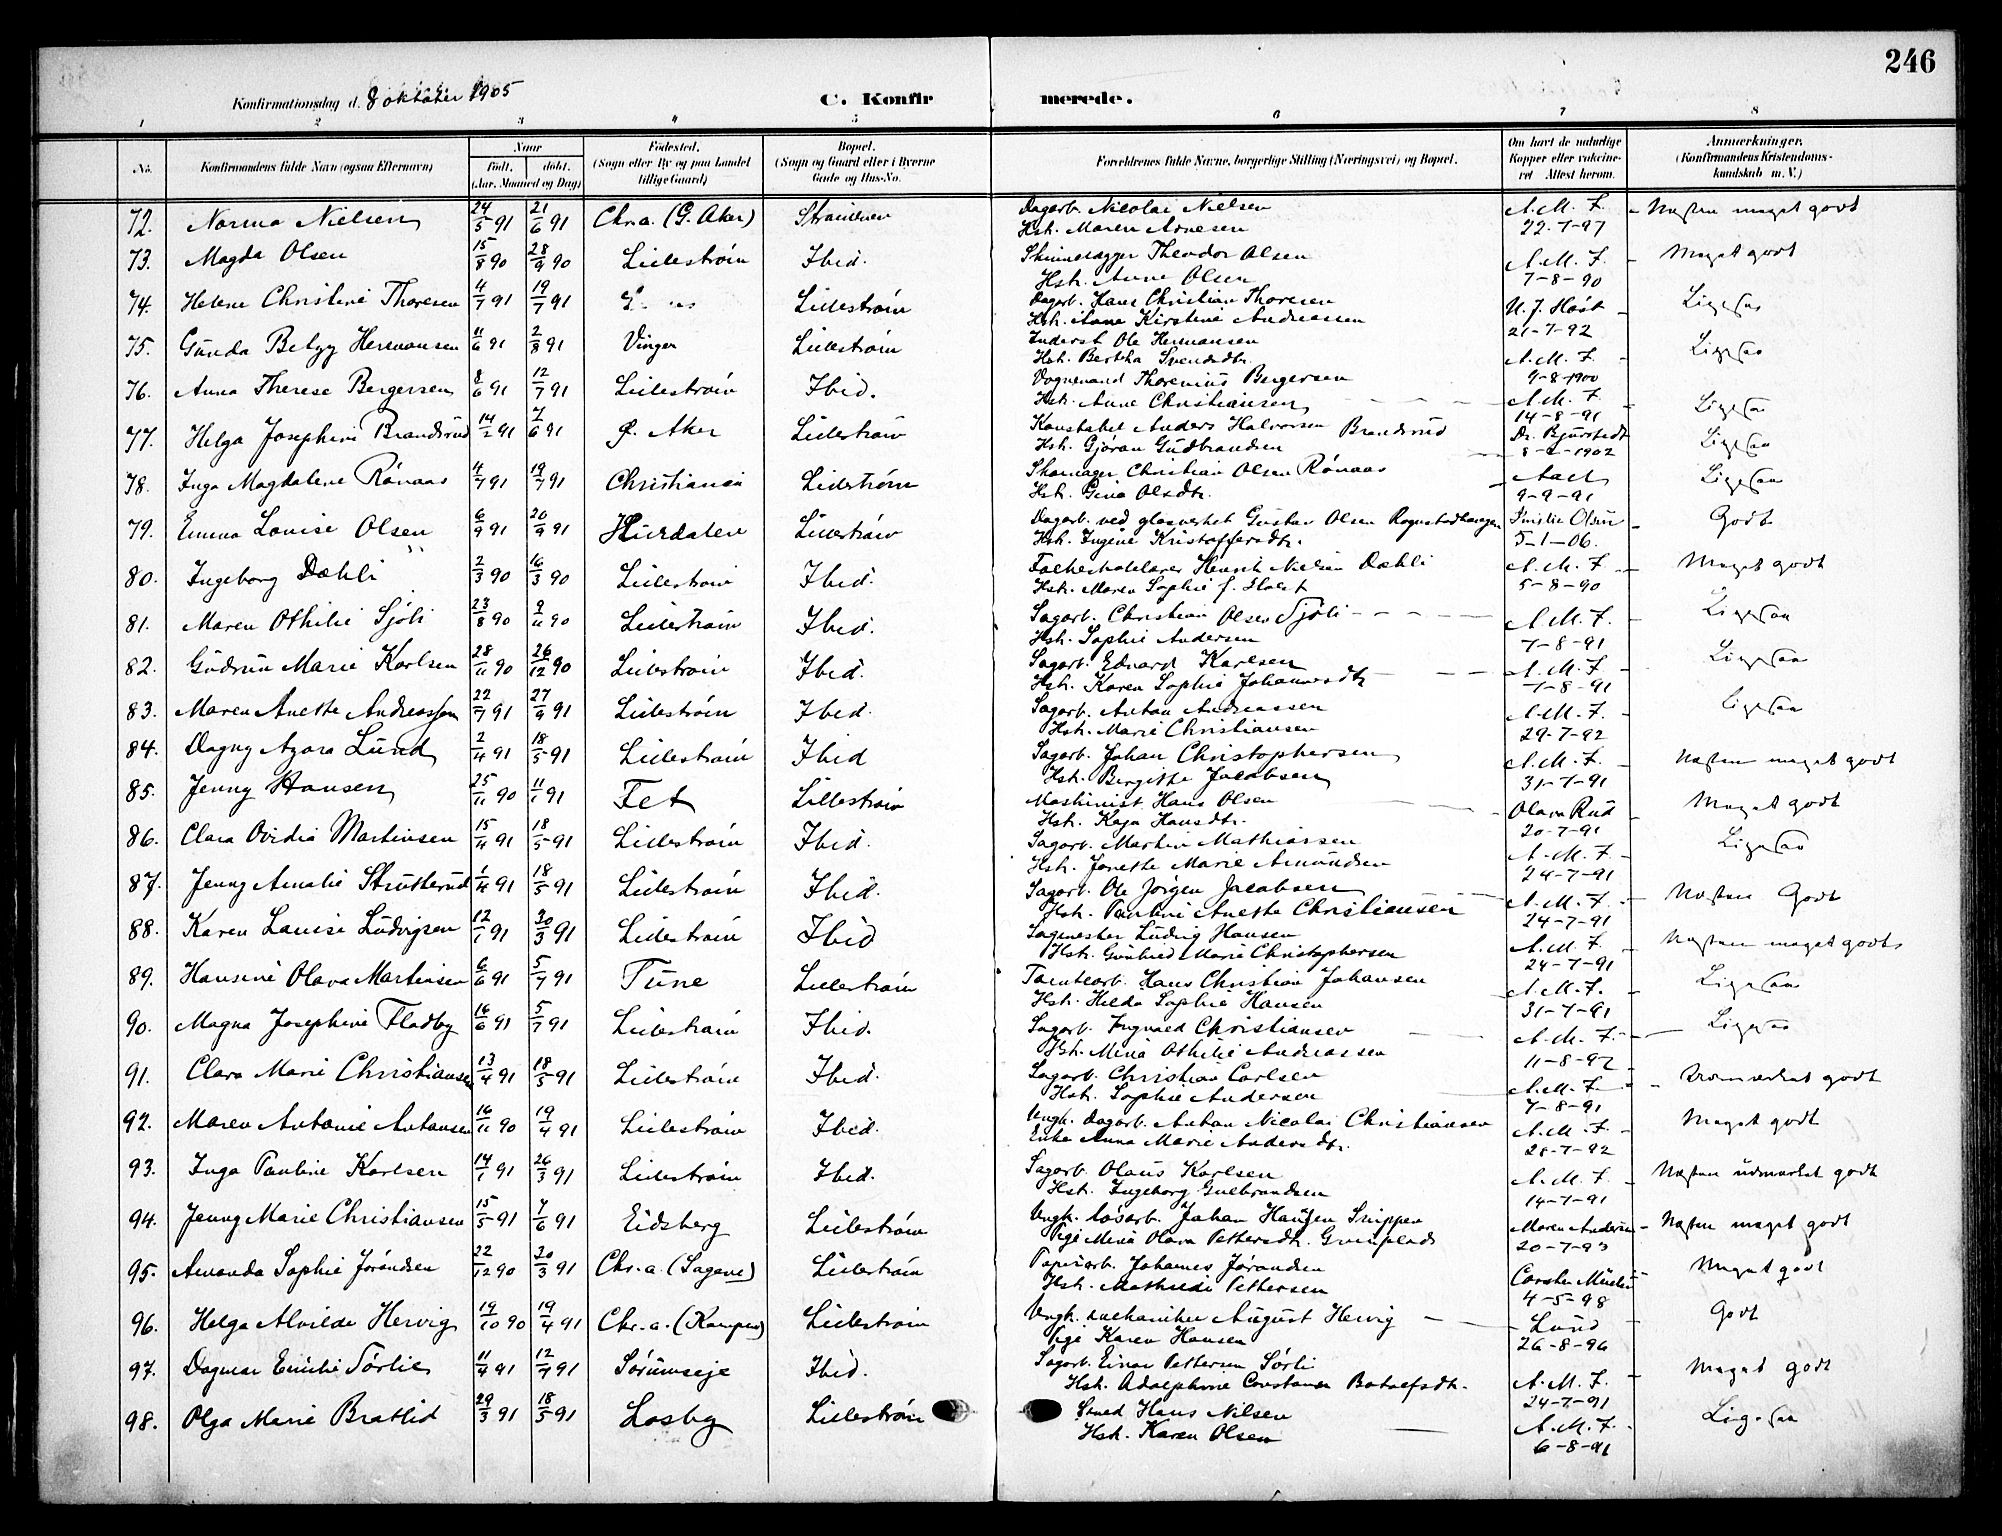 246
Konfirmationsdag d. 8 oktober 1905
C. Konfirmerede.
1 2 3 4 5 6 7 8
No. Konfirmandens fulde Navn (ogsaa Efternavn) Naar født, døbt. (Aar, Maaned og Dag) Fødested. (Sogn eller By og paa Landet tillige Gaard) Bopæl. (Sogn og Gaard eller i Byerne Gade og Hus-No. Forældrenes fulde Navne, borgerlige Stilling (Næringsvei) og Bopæl. Om havt de naturlige Kopper eller vakcineret Attest herom. Anmærkninger. (Konfirmandens Kristendomskundskab m. V.)
72. Norma Nielsen 24/5 91 21/6 91 Chr.a. (G. Aker) Strømmen Dagarb. Nicolai Nielsen A. M. F. Næsten meget godt
Hst. Maren Arnesen 22-7-97
73. Magda Olsen 15/8 90 28/9 90 Lillestrøm Ibid. Theodor Olsen A. M. F. Meget godt
Hst. Anne Olsen 7-8-90
74. Helene Christine Thoresen 4/7 91 19/7 91 Lillestrøm Dagarb. Hans Christian Thoresen Ligesaa
Hst. Anne Kirstine Andreassen 21-7-92
75. Gunda Betzy Hermansen 11/6 91 2/8 91 Vinger Lillestrøm Inderst Ole Hermansen A. M. F. Ligesaa
Hst. Bertha Svendsdtr. 9-8-1900
76. Anna Therese Bergersen 8/6 91 12/7 91 Lillestrøm Ibid. Vognmand Thorenius Bergersen A. M. F. Ligesaa
Hst. Anne Christiansen 14-8-91
77. Helga Josephine Brandsrud 14/2 91 7/6 91 Aker Lillestrøm Konstabel Anders Halvorsen Brandsrud Dr. Bjørstedt Ligesaa
Hst. Gjøran Gudbrandsen 8-2-1902
78. Inga Magdalene Rønaas 4/7 91 19/7 91 Christiania Lillestrøm Skomager Christian Olsen Rønaas Ligesaa
Hst. Gina Olsdtr. 9-9-91
79. Emma Lovise Olsen 6/9 91 20/9 91 Hurdalen Lillestrøm Dagarb. ved glasverket Gustav Olsen Rognstadhaugen Emilie Olsen Godt
Hst. Ingine Kristoffersdtr. 5-1-06.
80. Ingeborg Dæhli 2/3 90 16/3 90 Lillestrøm Ibid. Henrik Nielsen Dæhli A. M. F. Meget godt
Hst. Maren Sophie f. Holst 5-8-90
81. Maren Othilie Sjøli 23/8 90 9/11 90 Lillestrøm Ibid. Sagarb. Christian Olsen Sjøli A. M. F. Ligesaa
Hst. Sophie Andersen 7-8-91
82. Gudrun Marie Karlsen 28/11 90 26/12 90 Lillestrøm Ibid. Sagarb. Edvard Karlsen A. M. F. Ligesaa
Hst. Karen Sophie Johannesdtr 7-8-91
83. Maren Anette Andreassen 22/7 91 27/9 91 Lillestrøm Ibid. Sagarb. Anton Andreassen A. M. F. Ligesaa
Hst. Marie Christiansen 29-7-92
84. Dagny Azora Lund 2/4 91 18/5 91 Lillestrøm Ibid Sagarb. Johan Christophersen A. M. F. Næsten meget godt
Hst. Bergitte Jacobsen 31-7-91
85. Jenny Hansen 25/11 90 11/1 91 Fet Lillestrøm Maskinist Hans Olsen Olava Rud Meget godt
Hst. Kaja Hansdtr. 20-7-91
86. Clara Ovidia Martinsen 15/4 91 18/5 91 Lillestrøm Ibid. Sagarb. Martin Mathiassen A. M. F. Ligesaa
Hst. Jonette Marie Amundsen 24-7-91
87. Jenny Amalie Strutterud 1/4 91 18/5 91 Lillestrøm Ibid. Sagarb. Ole Jørgen Jacobsen A. M. F. Næsten Godt
Hst. Pauline Anette Christiansen 24-7-91
88. Karen Lovise Ludvigsen 12/1 91 30/3 91 Lillestrøm Ibid Sagmester Ludvig Hansen A. M. F. Næsten meget godt
Hst. Gunhild Marie Christophersen 24-7-91
89. Hansine Olava Martinsen 6/6 91 5/7 91 Tune Lillestrøm Tomtearb. Hans Christian Johansen A. M. F. Ligesaa
Hst. Hilda Sophie Hansen 31-7-91
90. Magna Josephine Fladby 16/6 91 5/7 91 Lillestrøm Ibid. Sagarb. Ingvald Christiansen A. M. F. Ligesaa
Hst. Mina Othilie Andreassen 11-8-92
91. Clara Marie Christiansen 13/4 91 18/5 91 Lillestrøm Ibid. Sagarb. Christian Carlsen A. M. F. Udmærket godt
Hst. Sophie Andersen 7-8-91
92. Maren Antonie Antonsen 16/11 90 19/4 91 Lillestrøm Ibid. Ungk. dagarb. Anton Nicolai Christiansen A. M. F. Meget godt
Enke Anna Marie Andersdtr. 28-7-92
93. Inga Pauline Karlsen 14/1 91 26/3 91 Lillestrøm Ibid. Sagarb. Olaus Karlsen A. M. F. Næsten udmærket godt
Hst. Ingeborg Gulbrandsen 14-7-91
94. Jenny Marie Christiansen 15/5 91 7/6 91 Eidsberg Lillestrøm Ungk. løsarb. Johan Hansen Snippen Maren Andersen Næsten meget godt
Pige Mina Olava Pettersdtr. 20-7-93
95. Amanda Sophie Jørandsen 22/12 90 30/3 91 Chr.a. (Sagene) Lillestrøm Papirarb. Johannes Jørandsen Meget godt
Hst. Mathilde Pettersen 4-5-98
96. Helga Alvilde Hervig 19/10 90 19/4 91 Chr.a. (Kampen) Lillestrøm Ungk. mekaniker August Hervig Lund Godt
Pige Karen Hansen 26-8-96
97. Dagmar Emilie Sørlie 11/4 91 12/7 91 Sørumseje Ibid. Sagarb. Einar Pettersen Sørli A. M. F. Meget godt
Hst. Adolphine Constance Botolfsdt. 24-7-91
98. Olga Marie Bratlid 29/3 91 18/5 91 Losby Lillestrøm Smed Hans Nilsen A. M. F. Ligesaa
Hst. Karen Olsen 6-8-91